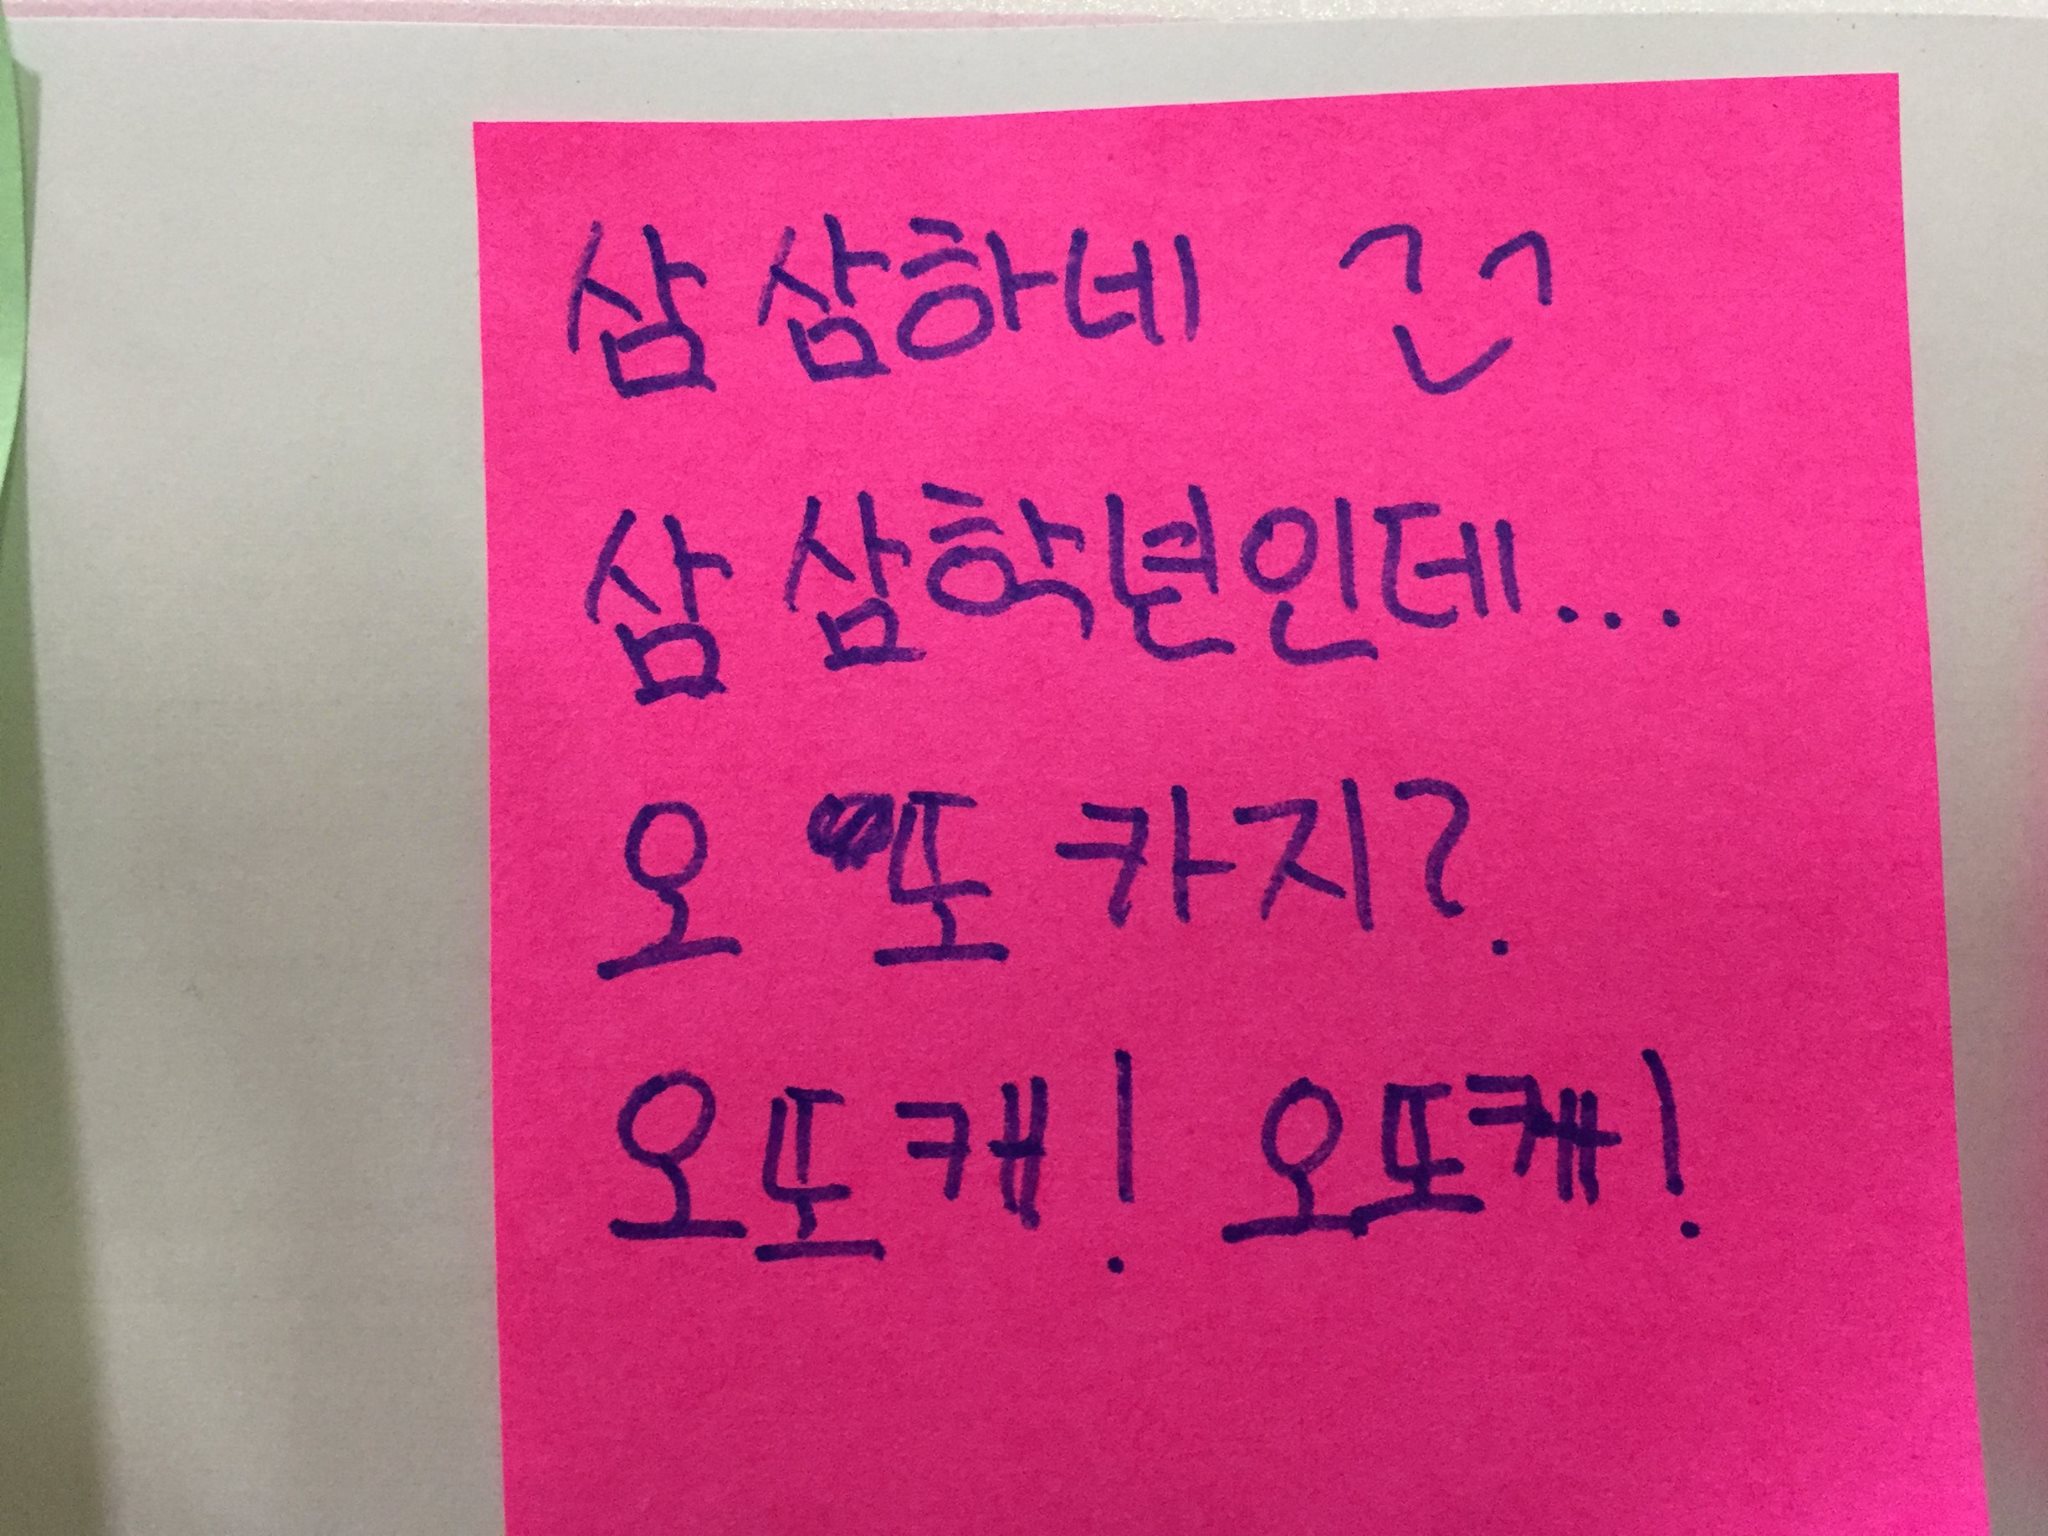 삼 삼하네
삼 삼학년인데...
오 또 카지?
오또캐! 오또캐!